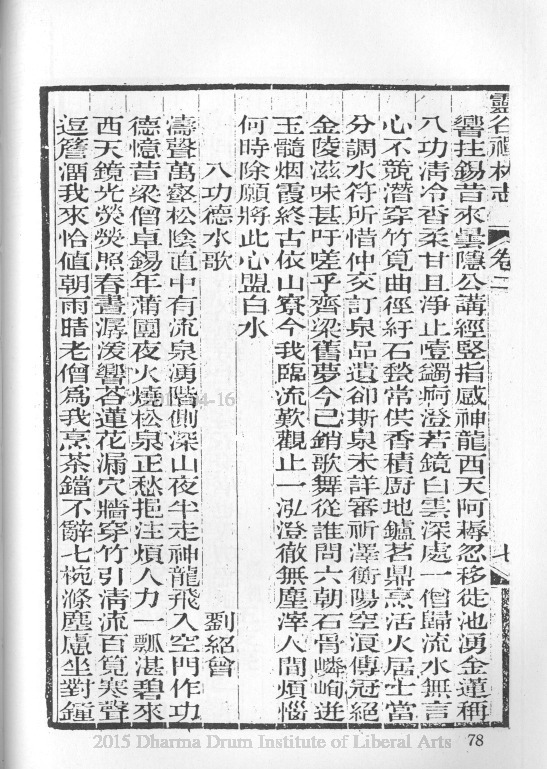 靈谷禪林志
卷二
七
響拄錫昔來曇隱公講經豎指感神龍西天阿耨忽移徙池湧金蓮稱
八功清冷香柔甘且淨止噎蠲痾澄若鏡白雲深處一僧歸流水無言
心不競潛穿竹筧曲徑紆石甃常供香積廚地鑪茗鼎烹活火居士當
分調水符所惜仲交訂泉品遺卻斯泉未詳審祈澤衡陽空浪傳冠絕
金陵滋味甚吁嗟乎齊梁舊夢今已銷歌舞從誰問六朝石骨嶙峋迸
玉髓烟霞終古依山寮今我臨流歎觀止一泓澄徹無塵滓人間煩惱
何時除願將此心盟白水
八功德水歌
劉紹曾
濤聲萬壑松陰直中有流泉湧階側深山夜半走神龍飛入空門作功
德憶昔梁僧卓錫年蒲團夜火燒松泉正愁挹注煩人力一瓢湛碧來
西天鏡光熒熒照春晝潺湲響答蓮花漏穴牆穿竹引清流百筧寒聲
逗簷溜我來恰值朝雨晴老僧為我烹茶鐺不辭七椀滌塵慮坐對鐘
04-16
2015 Dharma Drum Institute of Liberal Arts
78